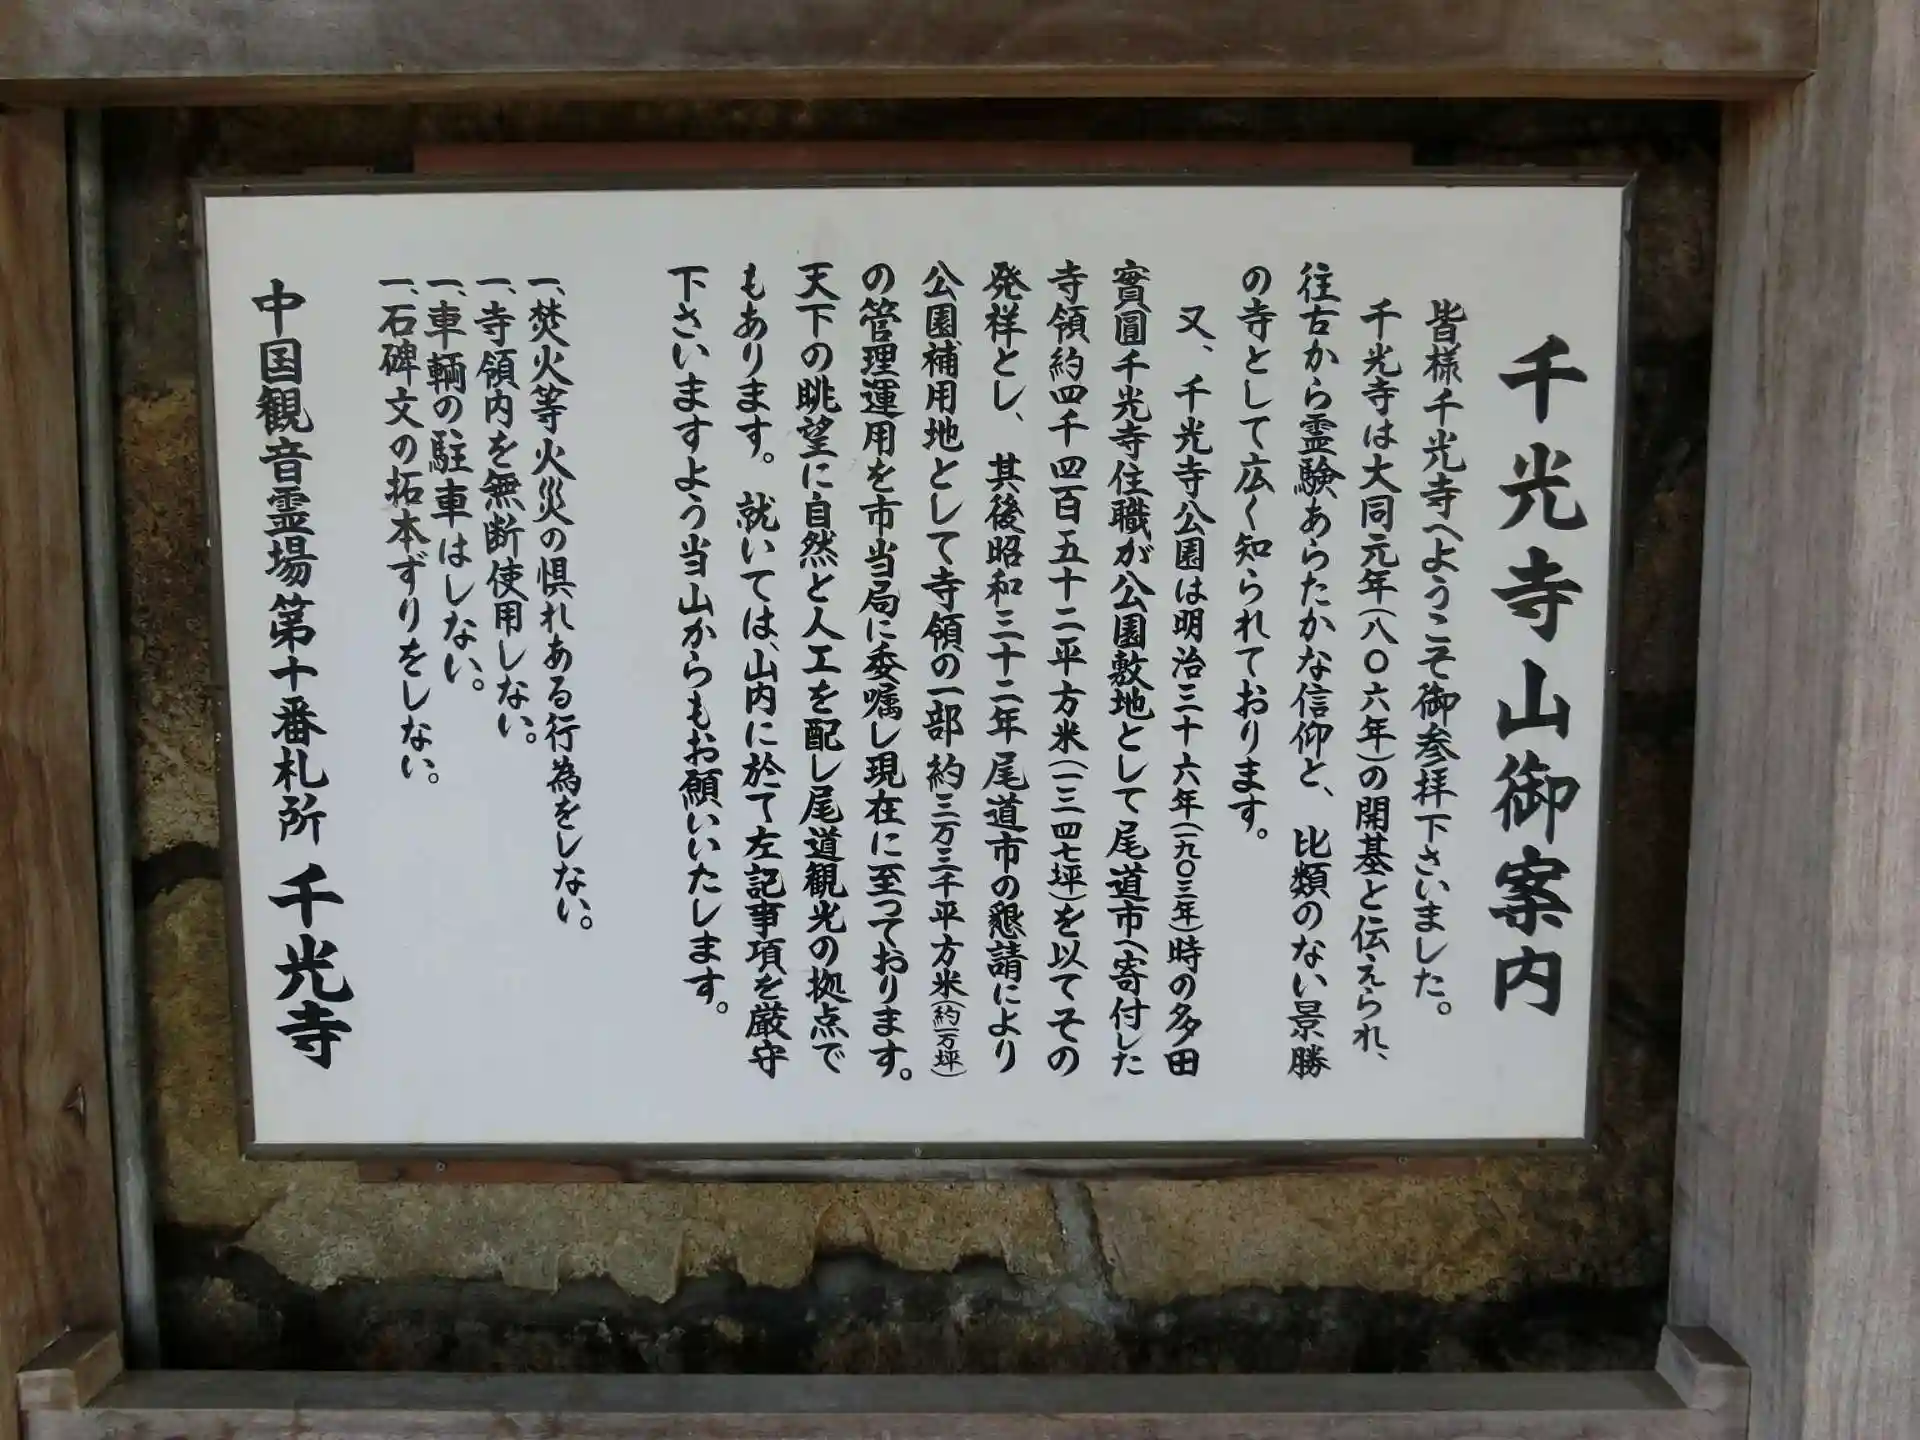 千光寺山御案内
皆様千光寺へようこそ御参拝下さいました。
千光寺は大同元年(八〇六年)の開基と伝えられ、
往古から霊験あらたかな信仰と、比類のない景勝
の寺として広く知られております。
又、千光寺公園は明治三十六年(一九〇三年)時の多田
實圓千光寺住職が公園敷地として尾道市へ寄付した
寺領約四千四百五十二平方米(一三四七坪)を以てその
発祥とし、其後昭和三十二年尾道市の懇請により
公園補用地として寺領の一部約三万三千平方米(約一万坪)
の管理運用を市当局に委嘱し現在に至っております。
天下の眺望に自然と人工を配し尾道観光の拠点で
もあります。就いては、山内に於て左記事項を厳守
下さいますよう当山からもお願いいたします。
一、焚火等火災の惧れある行為をしない。
一、寺領内を無断使用しない。
一、車輌の駐車はしない。
一、石碑文の拓本ずりをしない。
中国観音霊場第十番札所 千光寺